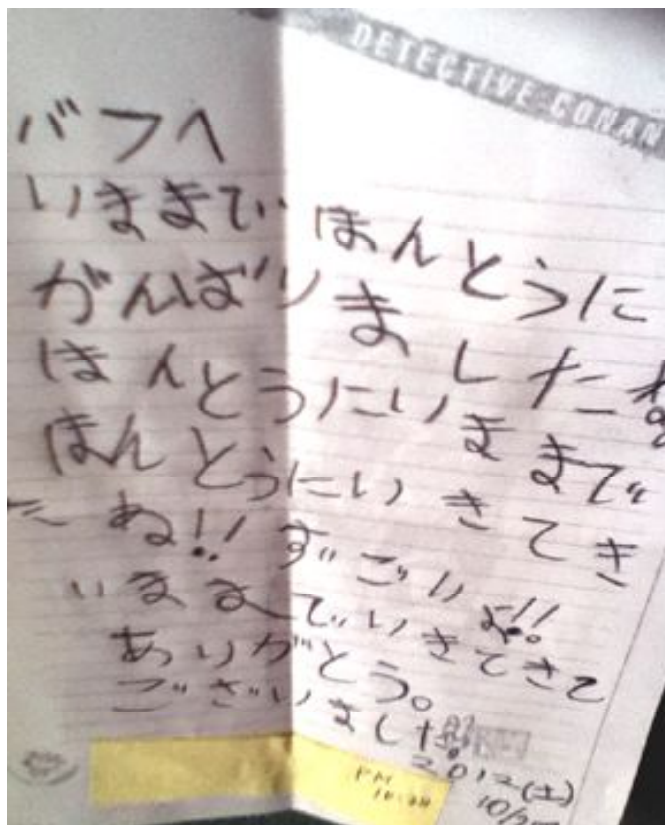 DETECTIVE CONAN
バフへ
いままで ほんとうに
がんばりましたね
ほんとうにいままで
ほんとうにいきてき
たね!! ずごいよ!!
いままでいきてきて
ありがとう。
ございました。
2012(土)
PM